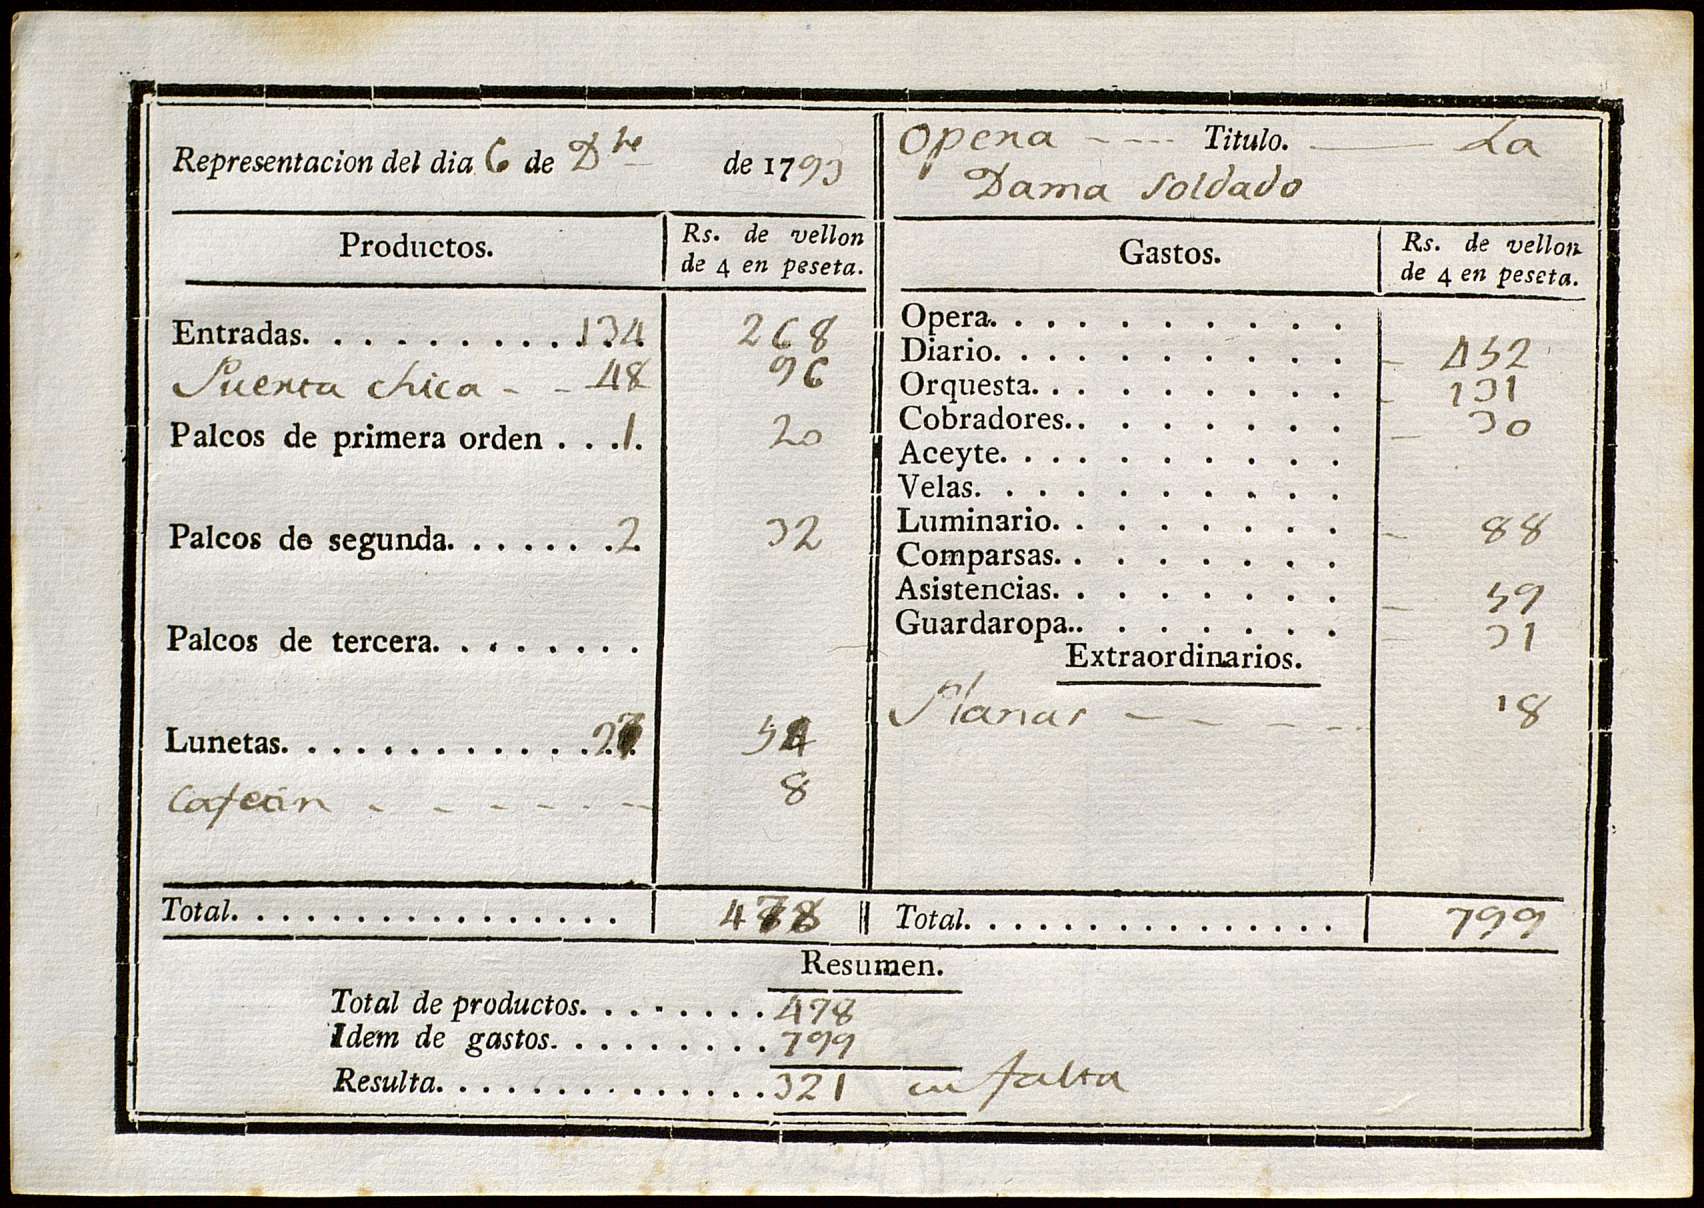 Representacion del dia 6 de Dbre de 1793
Productos.
Rs. de vellon
de 4 en peseta.
Entradas. 134 268
Puerta chica - - 48 96
Palcos de primera orden . . . 1. 20
Palcos de segunda. . . . . . . 2. 32
Palcos de tercera. . . . . . . .
Lunetas. . . . . . . . . . . . . 27 54
Cafetin - - - - - - 8
Total. . . . . . . . . . . . . . . . 478
Opera - - - - Titulo. La
Dama Soldado
Gastos.
Rs. de vellon
de 4 en peseta.
Opera. . . . . . . . . . .
Diario. . . . . . . . . . . - 452
Orquesta. . . . . . . . . . - 131
Cobradores.. . . . . . . . - 30
Aceyte. . . . . . . . . . .
Velas. . . . . . . . . . .
Luminario. . . . . . . . . - 88
Comparsas. . . . . . . . .
Asistencias. . . . . . . . . - 59
Guardaropa.. . . . . . . . - 31
Extraordinarios.
Planas - - - - - 18
Total. . . . . . . . . . . . . . . . 799
Resumen.
Total de productos. . . . . . . . 478
Idem de gastos. . . . . . . . . . 799
Resulta. . . . . . . . . . . . . . 321 en falta